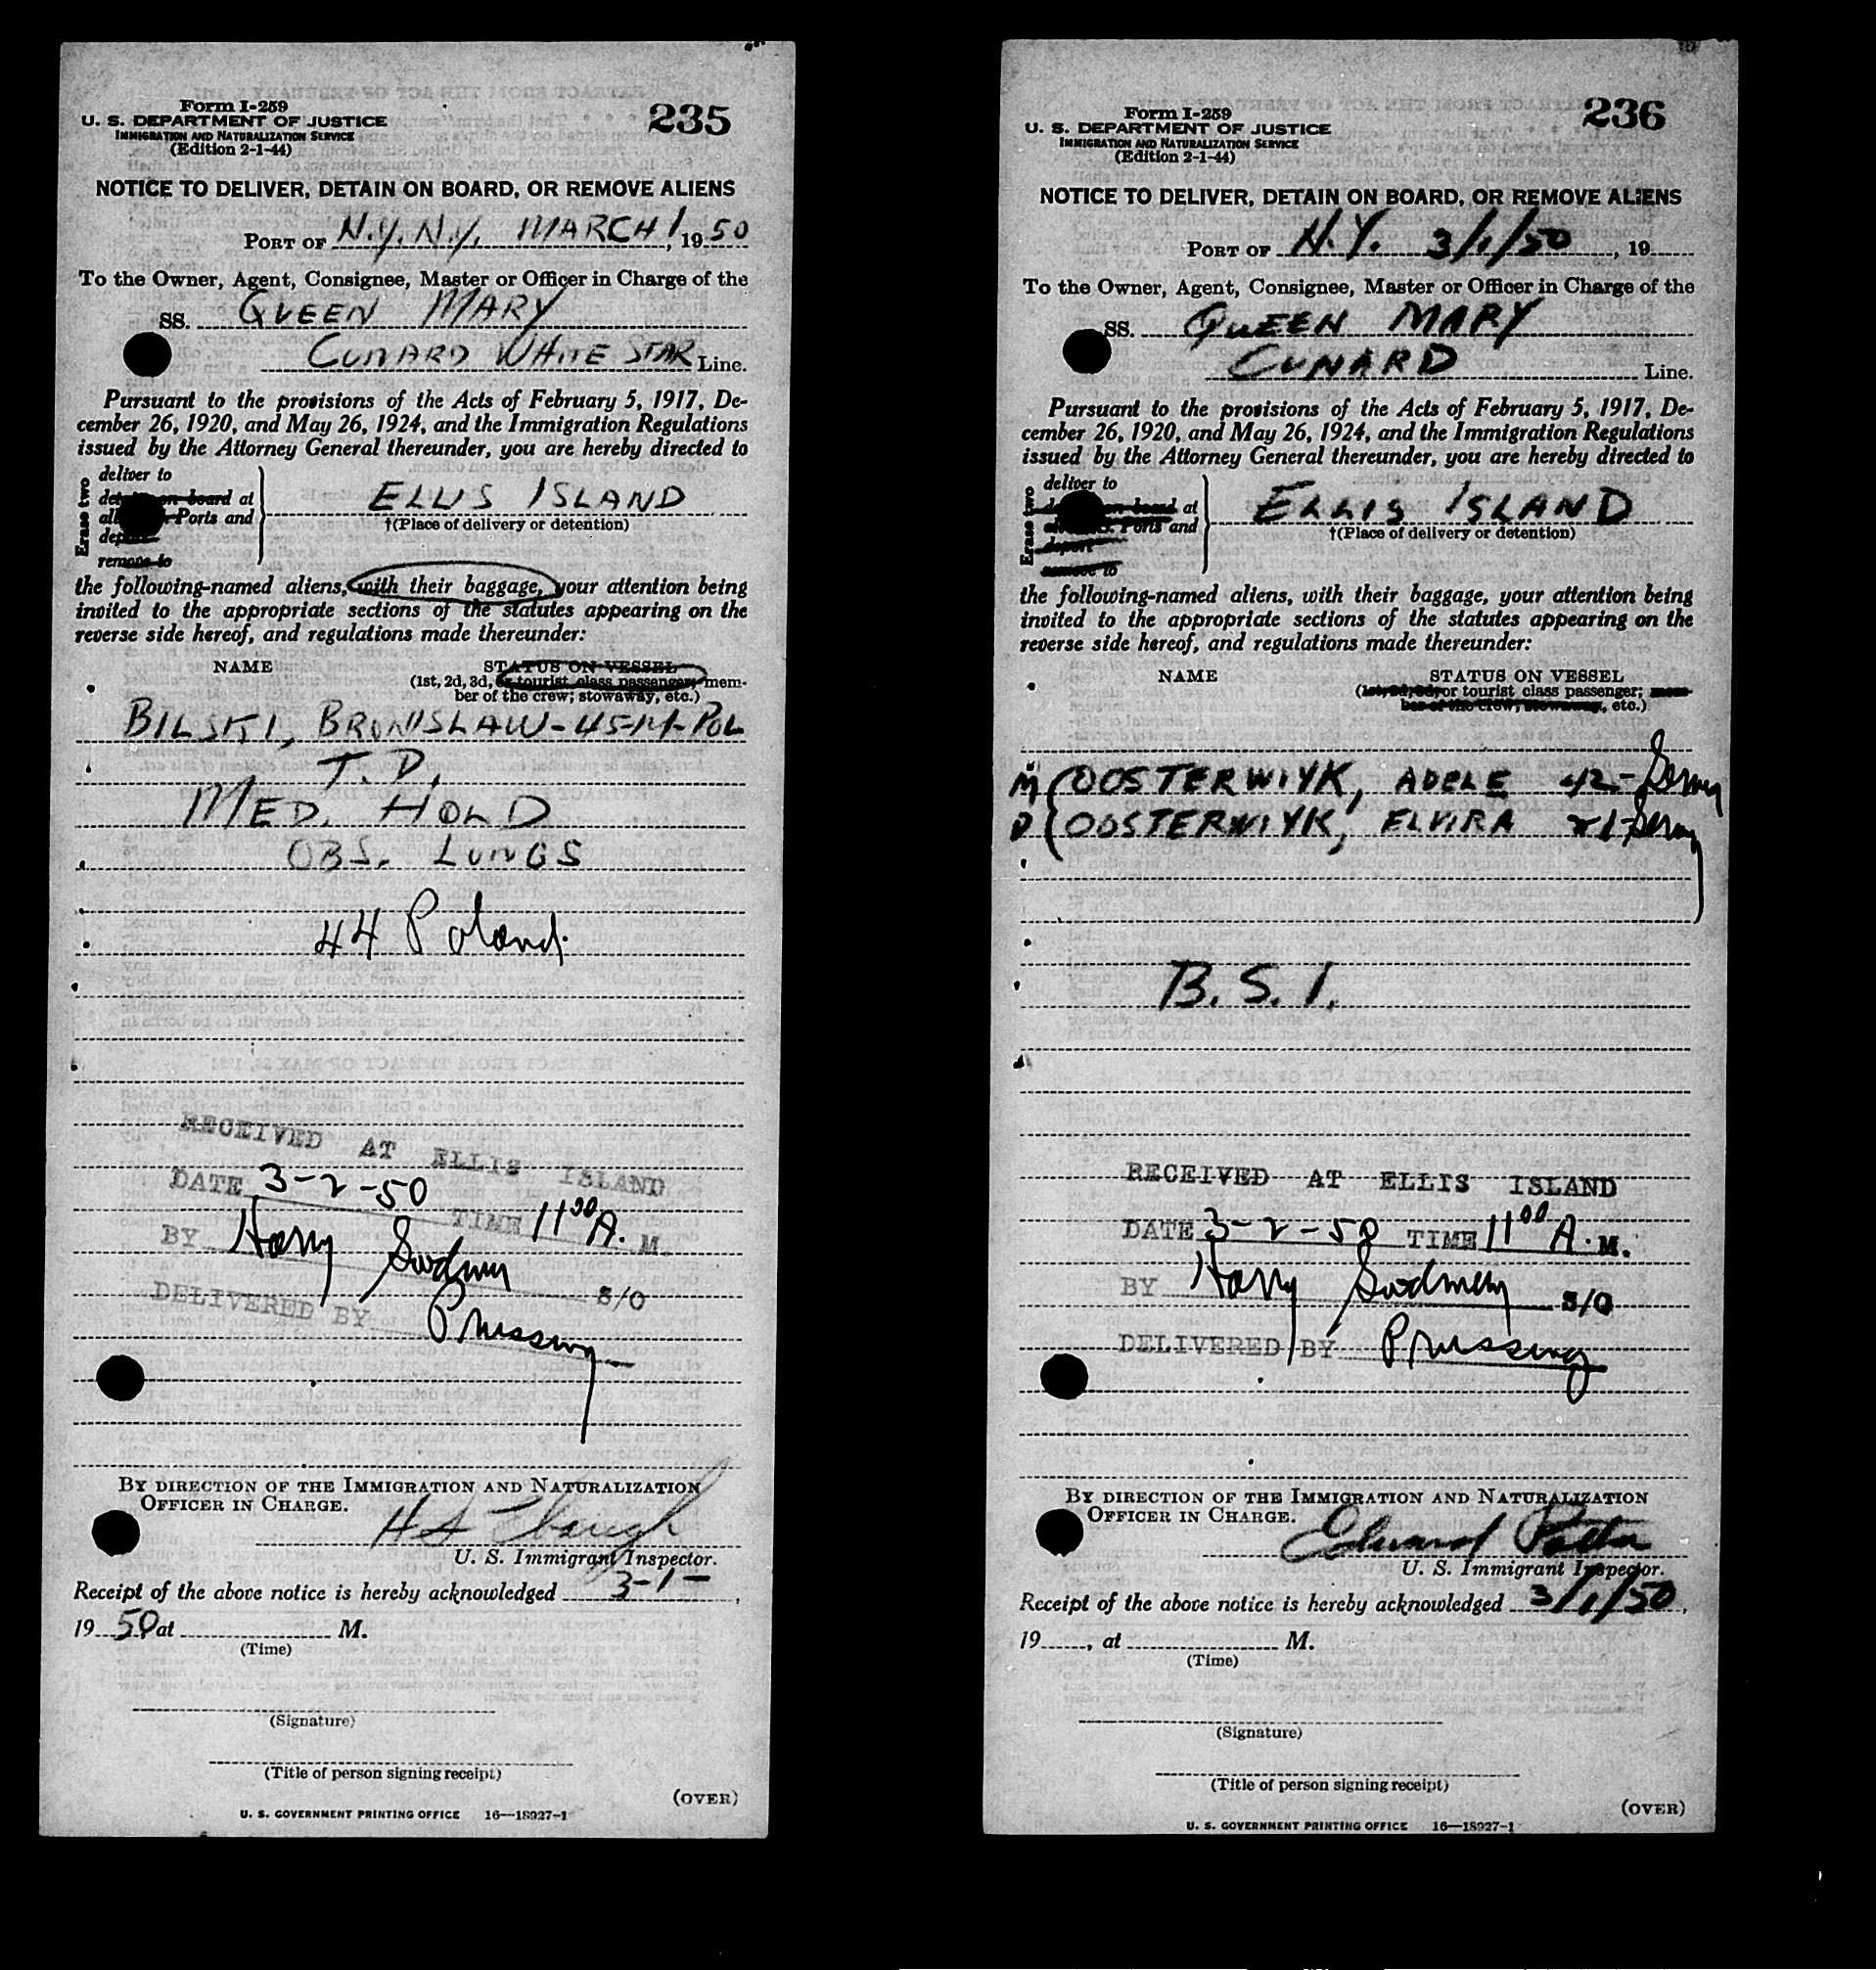 Form I-259
U. S. DEPARTMENT OF JUSTICE
IMMIGRATION AND NATURALIZATION SERVICE
(Edition 2-1-44)
235
NOTICE TO DELIVER, DETAIN ON BOARD, OR REMOVE ALIENS
PORT OF N.Y. N.Y. MARCH 1, 1950
To the Owner, Agent, Consignee, Master or Officer in Charge of the
SS. QUEEN MARY
CUNARD WHITE STAR Line.
Pursuant to the provisions of the Acts of February 5, 1917, De-
cember 26, 1920, and May 26, 1924, and the Immigration Regulations
issued by the Attorney General thereunder, you are hereby directed to
Erase two
deliver to
detain on board at
Ports and
remove to
ELLIS ISLAND
†(Place of delivery or detention)
the following-named aliens, with their baggage, your attention being
invited to the appropriate sections of the statutes appearing on the
reverse side hereof, and regulations made thereunder:
NAME STATUS ON VESSEL
(1st, 2d, 3d, or tourist class passenger; mem-
ber of the crew; stowaway, etc.)
BILSKI, BRONISLAW - 45-M-POL
T. D.
MED. HOLD
OBS. LUNGS
44 Poland.
RECEIVED AT ELLIS ISLAND
DATE 3-2-50 TIME 11 00 A. M.
BY Harry S/O
DELIVERED BY Prussing
BY DIRECTION OF THE IMMIGRATION AND NATURALIZATION
OFFICER IN CHARGE.
U. S. Immigrant Inspector.
Receipt of the above notice is hereby acknowledged 3-1-,
1950 at M.
(Time)
(Signature)
(Title of person signing receipt)
(OVER)
U. S. GOVERNMENT PRINTING OFFICE 16—18927-1
Form I-259
U. S. DEPARTMENT OF JUSTICE
IMMIGRATION AND NATURALIZATION SERVICE
(Edition 2-1-44)
236
NOTICE TO DELIVER, DETAIN ON BOARD, OR REMOVE ALIENS
PORT OF N.Y. 3/1/50, 19
To the Owner, Agent, Consignee, Master or Officer in Charge of the
SS. QUEEN MARY
CUNARD Line.
Pursuant to the provisions of the Acts of February 5, 1917, De-
cember 26, 1920, and May 26, 1924, and the Immigration Regulations
issued by the Attorney General thereunder, you are hereby directed to
Erase two
deliver to
on board at
Ports and
deport
remove to
ELLIS ISLAND
†(Place of delivery or detention)
the following-named aliens, with their baggage, your attention being
invited to the appropriate sections of the statutes appearing on the
reverse side hereof, and regulations made thereunder:
NAME STATUS ON VESSEL
or tourist class passenger; mem-
ber of the crew; stowaway, etc.)
M OOSTERWIYK, ADELE 42 -
D OOSTERWIYK, ELVIRA
B. S. I.
RECEIVED AT ELLIS ISLAND
DATE 3-2-50 TIME 11 00 A. M.
BY Harry S/O
DELIVERED BY Prussing
BY DIRECTION OF THE IMMIGRATION AND NATURALIZATION
OFFICER IN CHARGE.
Edward
U. S. Immigrant Inspector.
Receipt of the above notice is hereby acknowledged 3/1/50,
19, at M.
(Time)
(Signature)
(Title of person signing receipt)
(OVER)
U. S. GOVERNMENT PRINTING OFFICE 16—18927-1